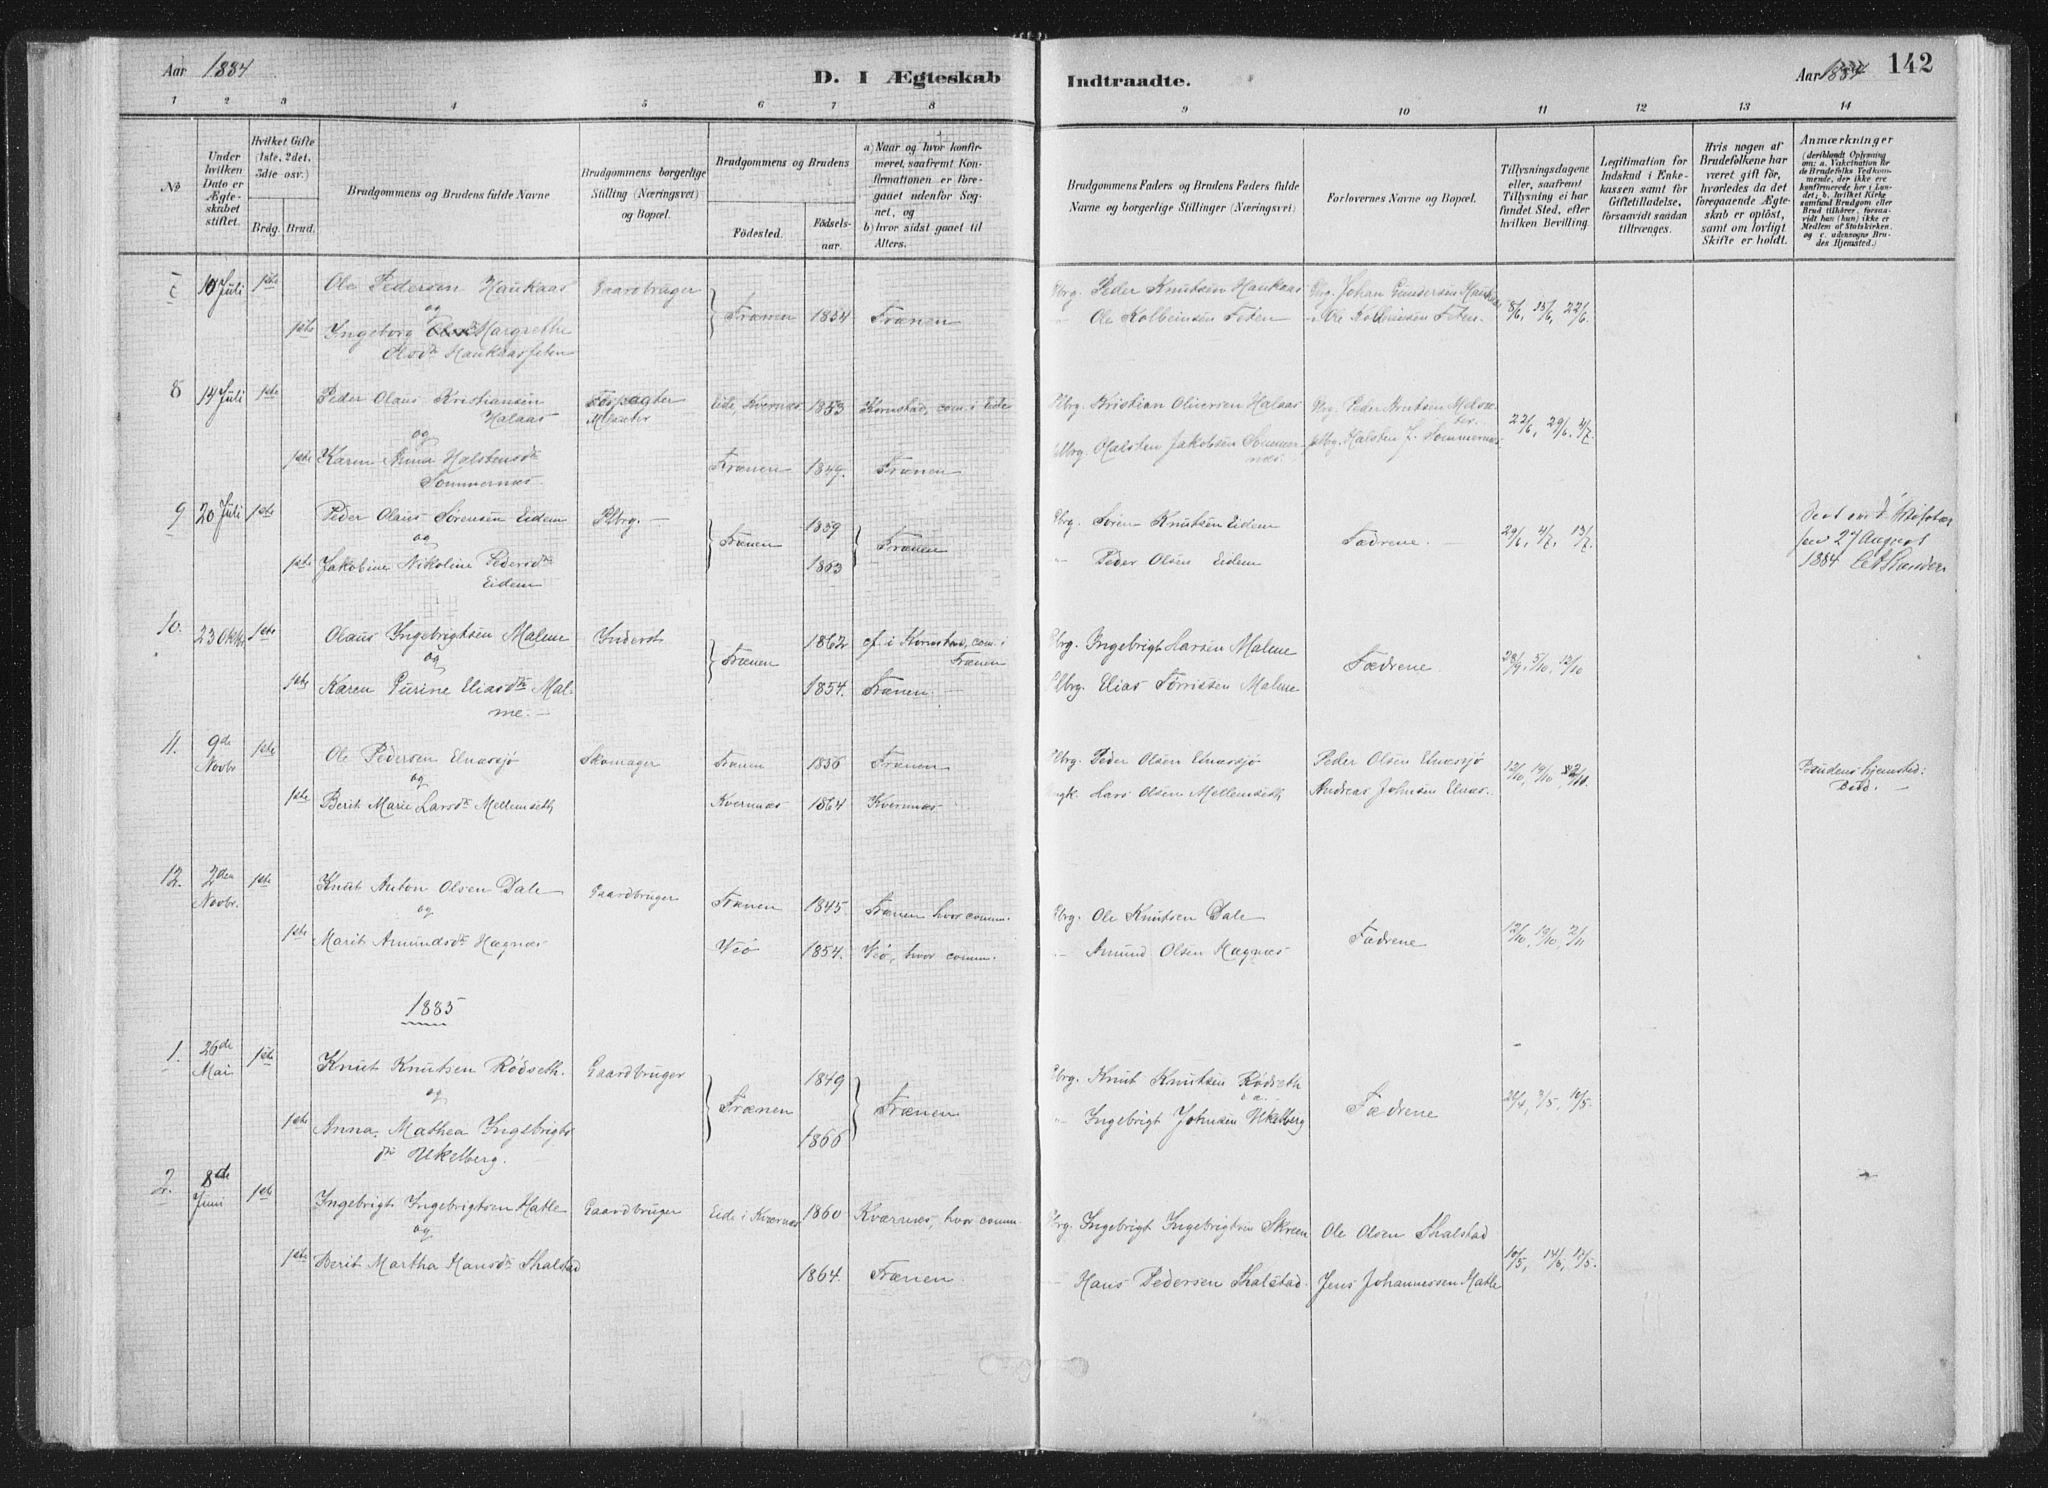 Aar 1884
D. I Ægteskab
Indtraadte.
Aar 1884
142
1 2 3 4 5 6 7 8 9 10 11 12 13 14
No
Under hvilken Dato er Ægteskabet stiftet.
Hvilket Gifte (1ste, 2det, 3die osv.)
Brdg. Brud.
Brudgommens og Brudens fulde Navne
Brudgommens borgerlige Stilling (Næringsvei) og Bopæl.
Brudgommens og Brudens
Fødested.
Fødsels-aar.
a) Naar og hvor konfirmeret, saafremt Konfirmationen er foregaaet udenfor Sognet, og
b) hvor sidst gaaet til Alters.
Brudgommens Faders og Brudens Faders fulde Navne og borgerlige Stillinger (Næringsvei)
Forlovernes Navne og Bopæl.
Tillysningsdagene eller, saafremt Tillysning ei har fundet Sted, efter hvilken Bevilling.
Legitimation for Indskud i Enkekassen samt for Giftetilladelse, forsaavidt saadan tiltrænges.
Hvis nogen af Brudefolkene har været gift før, hvorledes da det foregaaende Ægteskab er opløst, samt om lovligt Skifte er holdt.
Anmærkninger
(deriblandt Oplysning om: a. Vakcination for de Brudefolks Vedkommende, der ikke ere konfirmerede her i Landet; b. hvilket Kirkesamfund Brudgom eller Brud tilhører, forsaavidt han (hun) ikke er Medlem af Statskirken, og c. udensogns Brudes Hjemsted.)
7 10 Juli 1ste Ole Pedersen Haukaas Gaardbruger Gbrg. Peder Knutsen Haukaas Gbrg. Johan Gundersen Haukaas
og Frænen 1854 Frænen 8/6, 15/6, 22/6
1ste Ingeborg Margrethe " Ole Kolbeinsen Feten " Ole Kolbeinsen Feten.
Olsdtr Haukaasfeten
8 14 Juli 1ste Peder Olaus Kristiansen Halaas Forpagter Eide, Kvernæs 1853 Kornstad, com. i Eide Gbrg. Kristian Oliversen Halaas Gbrg. Peder Knutsen
og 22/6, 29/6, 4/7.
1ste Karen Anna Halstensdtr Sommernæs. Frænen 1849. Frænen Gbrg. Halsten Jakobsen Sommernæs. Gbrg. Halsten J. Sommernæs
9 20 Juli 1ste Peder Olaus Sørensen Eidem Gbrg. 1859 Gbrg. Søren Knutsen Eidem
og Frænen Frænen Fædrene. 29/6, 4/7, 13/7
1ste Jakobine Nikoline Pedersdtr Eidem 1863 " Peder Olsen Eidem
27 August 1884
10. 23 Oktbr 1ste Olaus Ingebrigtsen Malme Inderst 1862 cf. i Kornstad, com. i Frænen Gbrg. Ingebrigt Larsen Malme
og Frænen Fædrene 28/9, 5/10, 12/10
1ste Karen Gurine Eliasdtr Malme. 1854. Frænen Gbrg. Elias Tørrissen Malme
11. 9de Novbr 1ste Ole Pedersen Elnæssjø Skomager Frænen 1856 Frænen Gbrg. Peder Olsen Elnæssjø Peder Olsen Elnæssjø 12/10, 19/10, Brudens Hjemsted: Bud.
og
1ste Berit Marie Larsdtr Mellemseth Kvernæs 1864 Kvernæs Lars Olsen Mellemseth Andreas Johnsen Elnæs.
12. 2den Novbr. 1ste Knut Anton Olsen Dale Gaardbruger Frænen 1845 Frænen hvor comm. Gbrg. Ole Knutsen Dale
og Fædrene 12/10, 19/10, 2/11
1ste Marit Amundsdtr Hægnæs Veø 1854. Veø, hvor comm. " Amund Olsen Hægnæs
1885
1. 26de Mai 1ste Knut Knutsen Rødseth. Gaardbruger 1849 Gbrg. Knut Knutsen Rødseth
og Frænen Frænen Fædrene 26/4, 3/5, 10/5.
1ste Anna Mathea Ingebrigtsdtr Ukelberg. 1866 " Ingebrigt Johnsen Ukelberg
2. 8de Juni 1ste Ingebrigt Ingebrigtsen Hatle Gaardbruger Eide i Kværnæs 1860 Kværnæs, hvor comm. Gbrg. Ingebrigt Ingebrigtsen Skreen Ole Olsen Thalstad
og 10/5, 14/5, 17/5.
1ste Berit Martha Hansdtr Thalstad 1864. Frænen. " Hans Pedersen Thalstad. Jens Johannessen Hatle